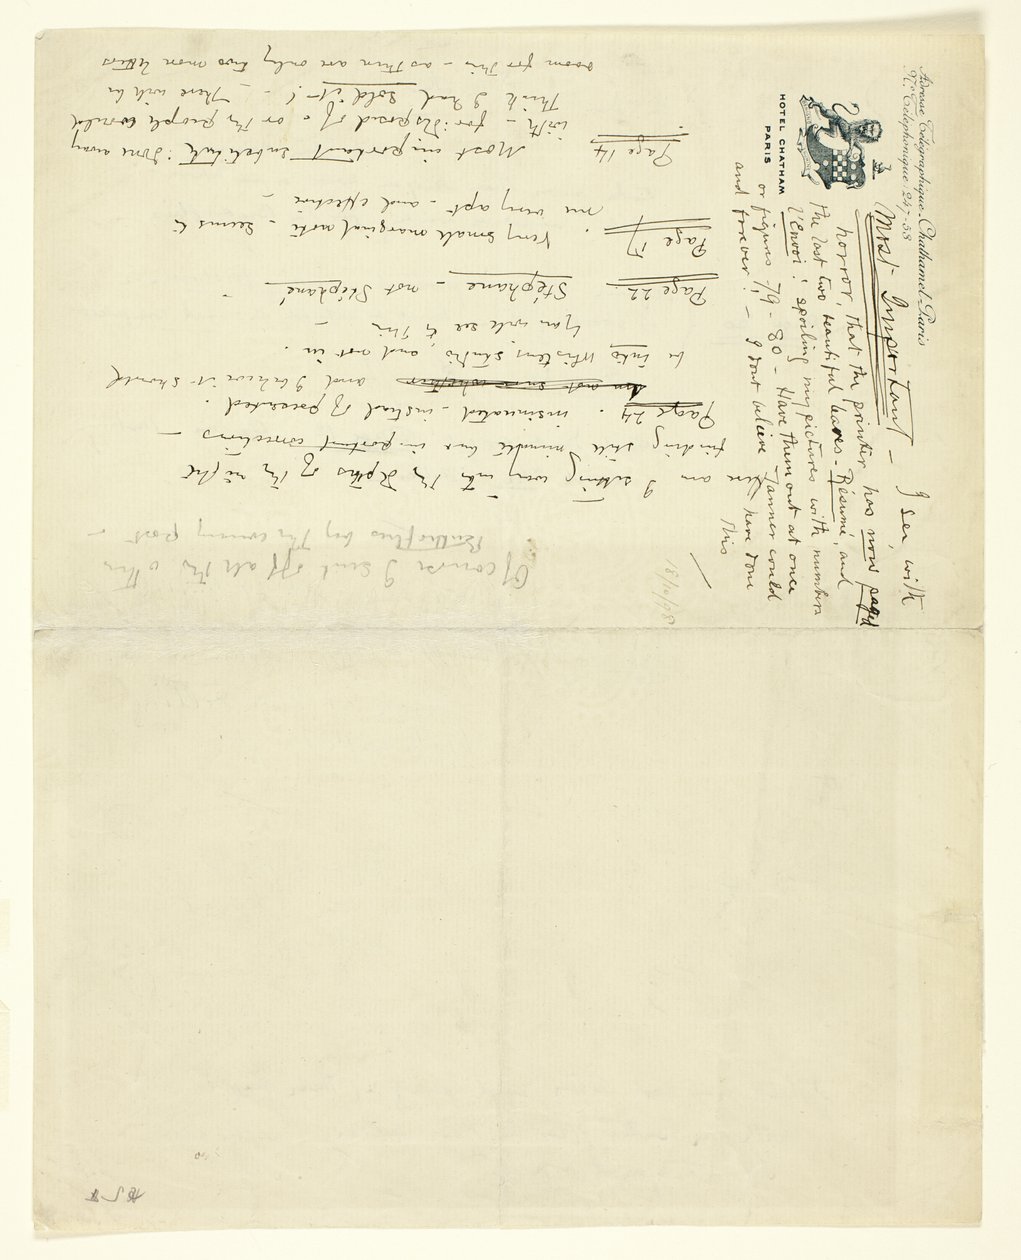 Adresse Télégraphique: Chathamel-Paris
No. Téléphonique: 247-53
HOTEL CHATHAM
PARIS
Most Important — I see, with
horror, that the printer has now paged
the last two beautiful leaves - Résumé, and
L'Envoi! spoiling my pictures with numbers
or figures 79 - 80 - Have them out at once
and forever! - I dont believe Tanner could
have done
this
18/10/98
Of course I send off all the other
by the evening post -
Here am I sitting way into the depths of the night
finding still minute but important corrections —
Page 24. insinuated - instead of presented.
and I believe it should
be into Whistler's studio, and not in.
You will see to this —
Page 22. Stéphane - not Stéphané
Page 17. Very small marginal note - seems to
me very apt - and effective -
Page 14. Most important indeed: done away
with - for: disposed of - or the people would
think I had sold it -! - There will be
room for this - as there are only two more letters